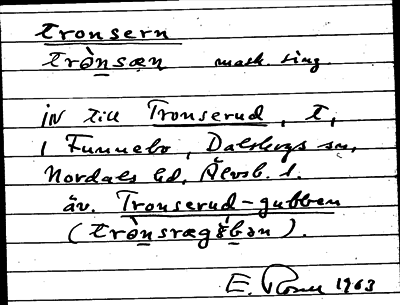 Tronsern
trò̱nsæn mask. sing.
IN till Tronserud, t,
i Funnebo, Dalskogs sn,
Nordals hd, Älvsb. l.
äv. Tronserud-gubben
(trò̱nsrægu̇bən).
E. 1963